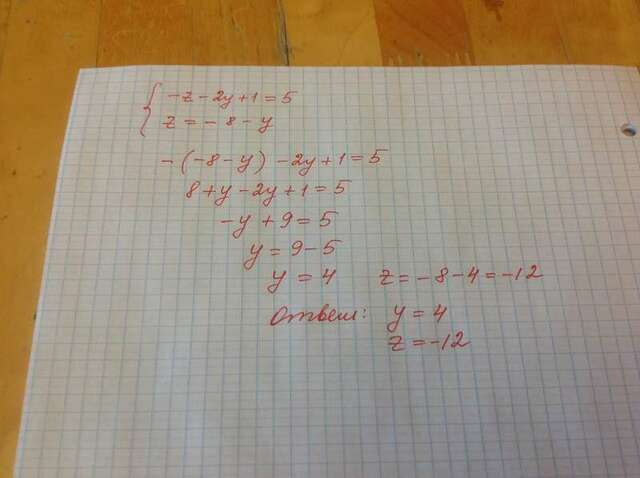 -z-2y+1=5
z=-8-y
-(-8-y)-2y+1=5
8+y-2y+1=5
-y+9=5
y=9-5
y=4 z=-8-4=-12
Ответ: y=4
z=-12